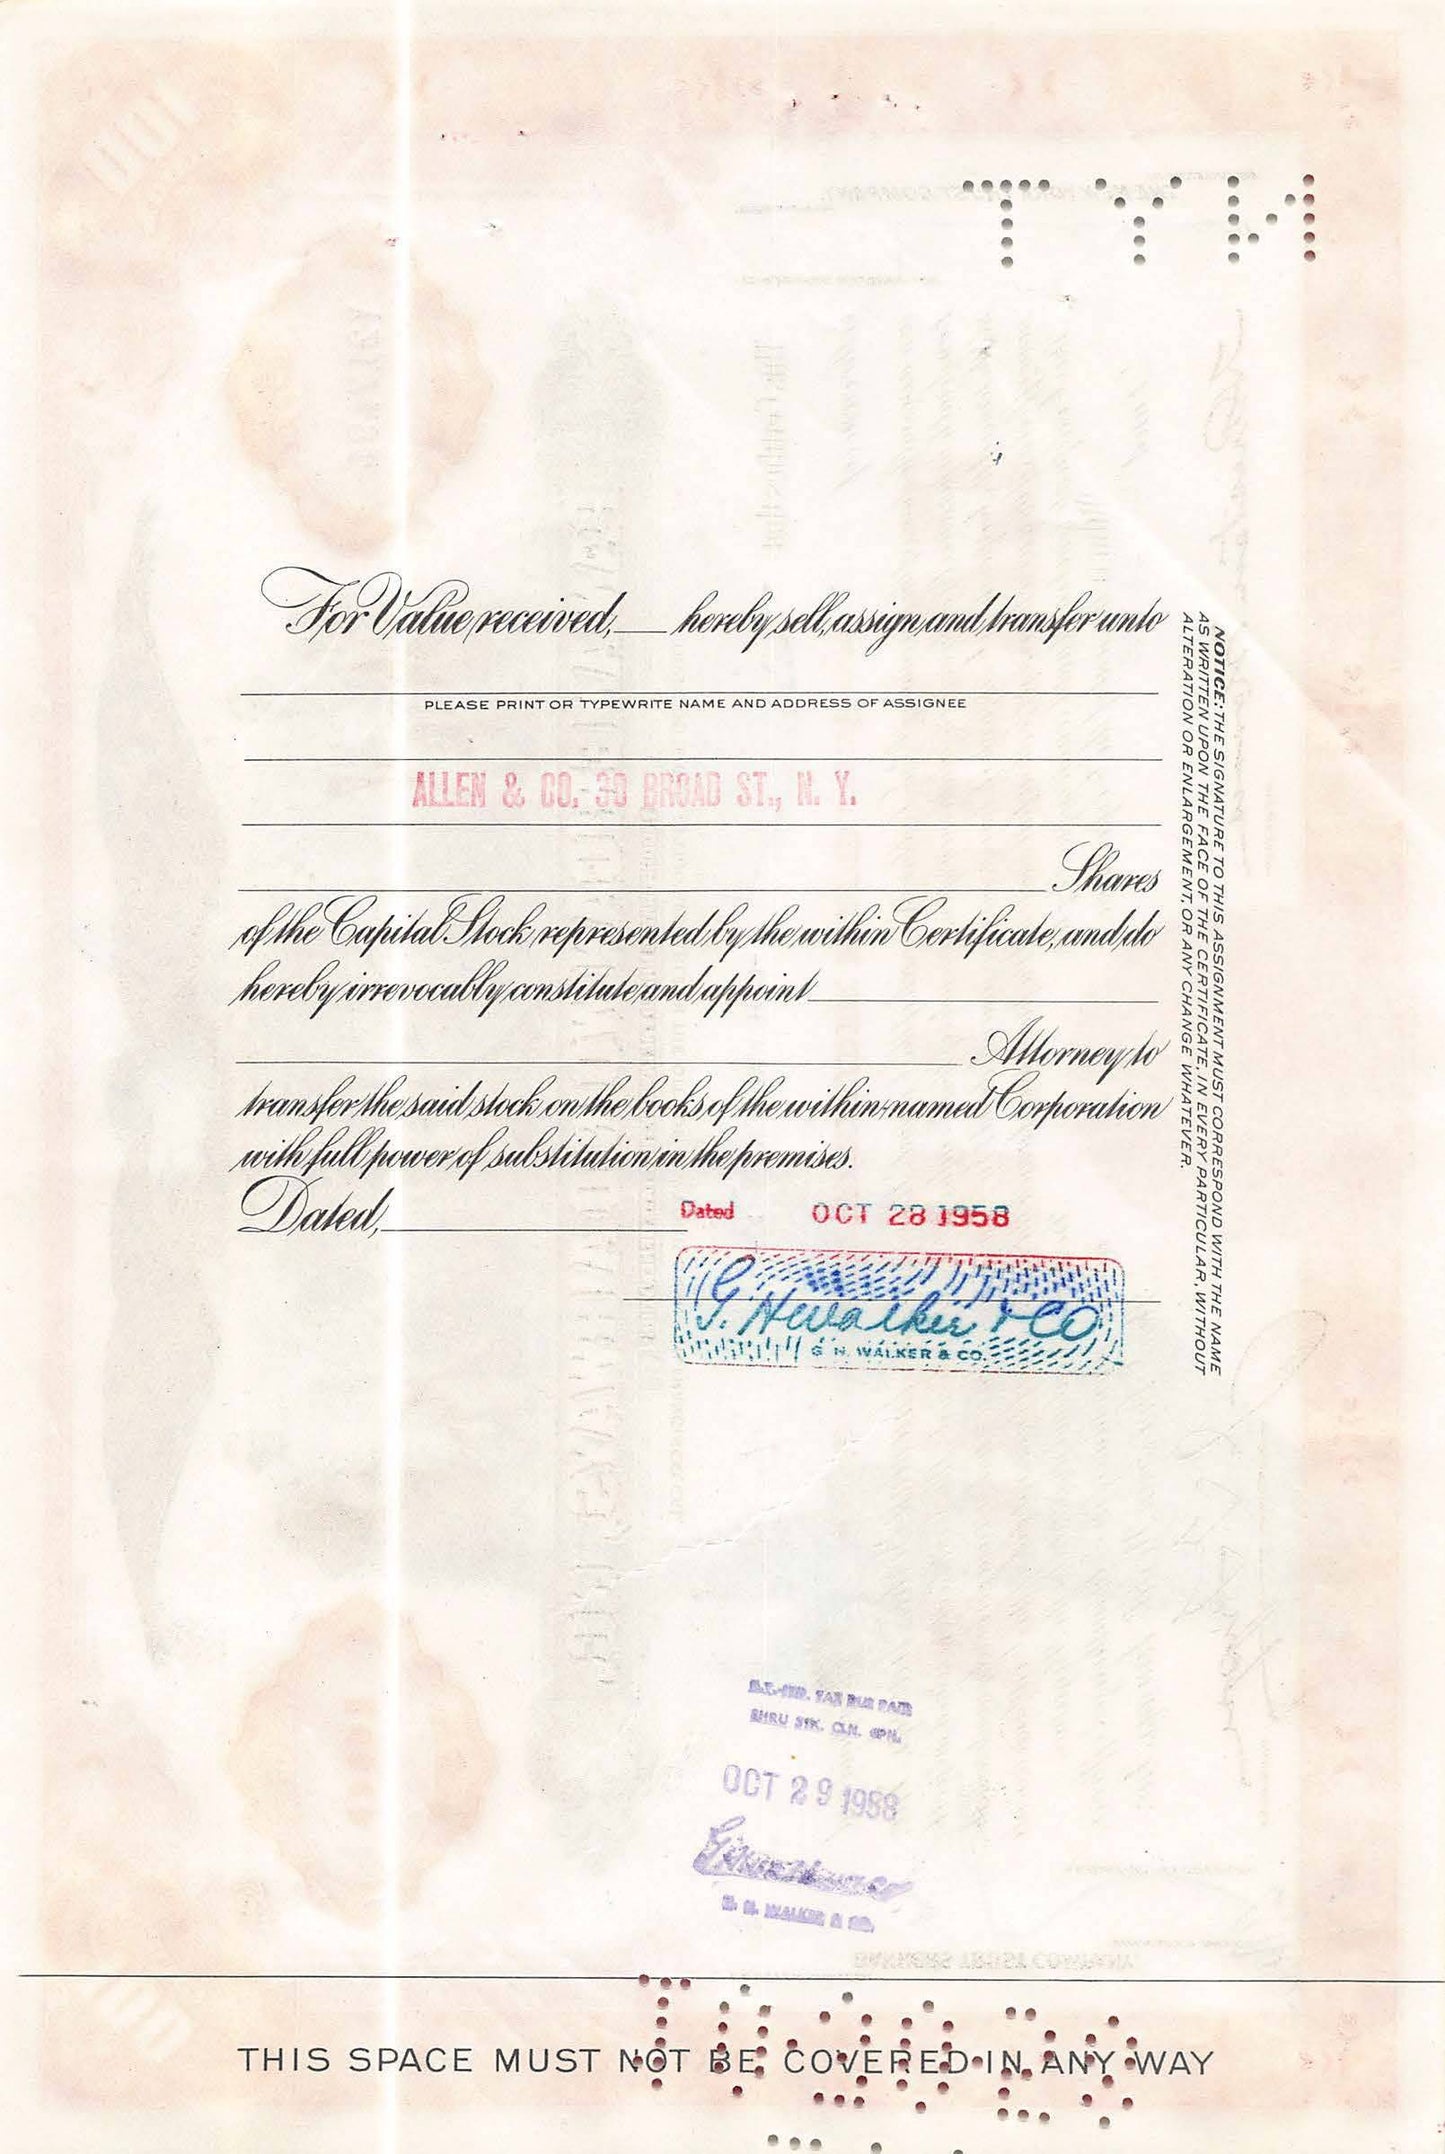 For Value received, hereby sell, assign and transfer unto
PLEASE PRINT OR TYPEWRITE NAME AND ADDRESS OF ASSIGNEE
ALLEN & CO. 30 BROAD ST., N. Y.
Shares
of the Capital Stock represented by the within Certificate, and do
hereby irrevocably constitute and appoint
Attorney to
transfer the said stock on the books of the within named Corporation
with full power of substitution in the premises.
Dated,
Dated OCT 28 1958
G. H. Walker & Co
G. H. WALKER & CO.
NOTICE: THE SIGNATURE TO THIS ASSIGNMENT MUST CORRESPOND WITH THE NAME
AS WRITTEN UPON THE FACE OF THE CERTIFICATE, IN EVERY PARTICULAR, WITHOUT
ALTERATION OR ENLARGEMENT, OR ANY CHANGE WHATEVER.
TAX DUE PAID
THRU STK. CLN.
OCT 29 1958
WALKER & CO.
THIS SPACE MUST NOT BE COVERED IN ANY WAY